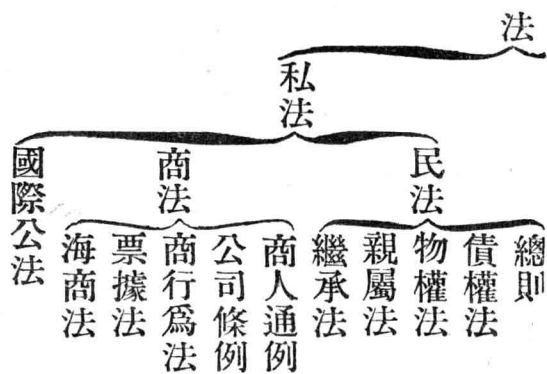 法
私法
民法
總則
債權法
物權法
親屬法
繼承法
商法
商人通例
公司條例
商行爲法
票據法
海商法
國際公法